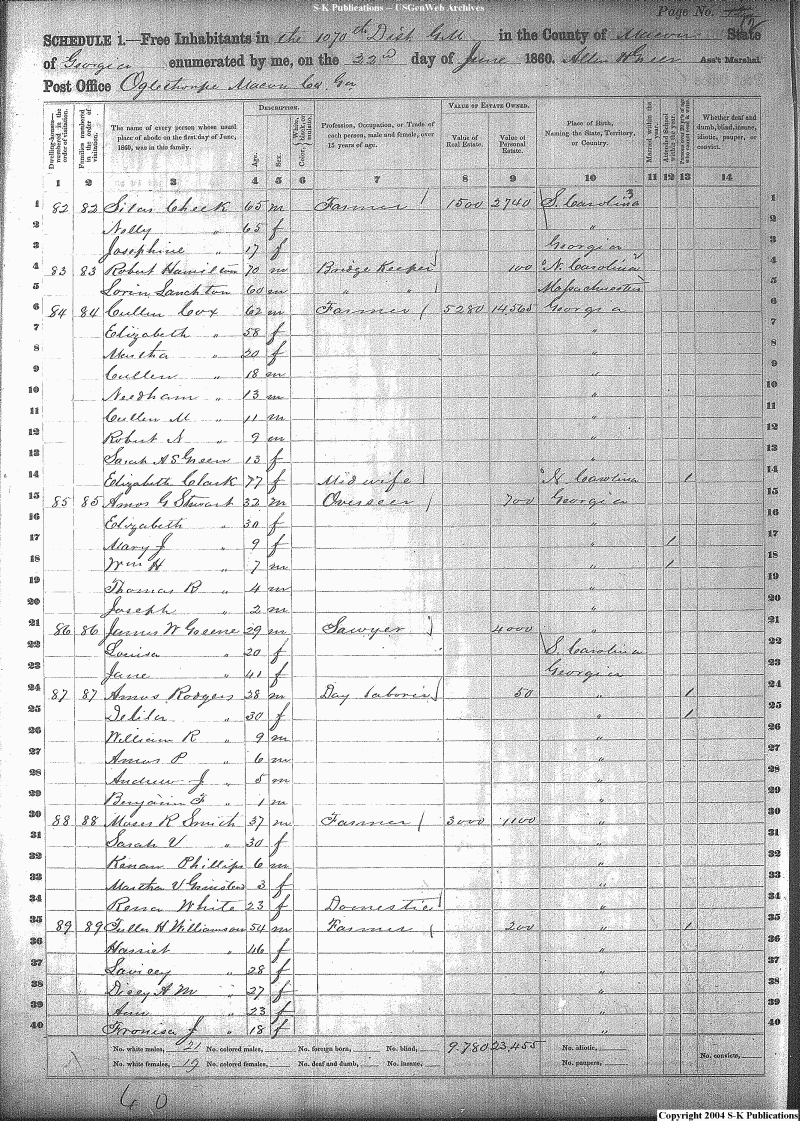 S-K Publications – USGenWeb Archives
Page No. 12
SCHEDULE 1.—Free Inhabitants in the 1070th Dist G.M. in the County of Macon State
of Georgia enumerated by me, on the 22nd day of June 1860. Allen W Green Ass't Marshal
Post Office Oglethorpe Macon Co Ga
Dwelling-houses—numbered in the order of visitation. Families numbered in the order of visitation. The name of every person whose usual place of abode on the first day of June, 1860, was in this family. DESCRIPTION. Age. Sex. Color, White, black, or mulatto. Profession, Occupation, or Trade of each person, male and female, over 15 years of age. VALUE OF ESTATE OWNED. Value of Real Estate. Value of Personal Estate. Place of Birth, Naming the State, Territory, or Country. Married within the year. Attended School within the year. Persons over 20 y'rs of age who cannot read & write. Whether deaf and dumb, blind, insane, idiotic, pauper, or convict.
1 2 3 4 5 6 7 8 9 10 11 12 13 14
1 82 82 Silas Cheek 65 m Farmer 1500 2740 S. Carolina 1
2 Nelly " 65 f " 2
3 Josephine " 17 f Georgia 3
4 83 83 Robert Hamilton 70 m Bridge Keeper 100 N. Carolina 4
5 Lorin Lanchton 60 m " " Massachusetts 5
6 84 84 Cullen Cox 62 m Farmer 5280 14,565 Georgia 6
7 Elizabeth " 58 f " 7
8 Martha " 20 f " 8
9 Cullen " 18 m " 9
10 Needham " 13 m " 10
11 Cullen M " 11 m " 11
12 Robert N " 9 m " 12
13 Sarah A S Green 13 f " 13
14 Elizabeth Clark 77 f Midwife N. Carolina 1 14
15 85 85 Amos G Stewart 32 m Overseer 700 Georgia 15
16 Elizabeth " 30 f " 16
17 Mary J " 9 f " 1 17
18 Wm H " 7 m " 1 18
19 Thomas R " 4 m " 19
20 Joseph " 2 m " 20
21 86 86 James W Greene 29 m Sawyer 4000 " 21
22 Louisa " 20 f S. Carolina 22
23 Jane " 41 f Georgia 23
24 87 87 Amos Rodgers 38 m Day laborer 50 " 1 24
25 Delila " 30 f " 1 25
26 William R " 9 m " 26
27 Amos P " 6 m " 27
28 Andrew J " 5 m " 28
29 Benjamin F " 1 m " 29
30 88 88 Moses R Smith 37 m Farmer 3000 1100 " 30
31 Sarah V " 30 f " 31
32 Kenan Phillips 6 m " 32
33 Martha V 3 f " 33
34 Rena White 23 f Domestic " 34
35 89 89 Fuller H Williamson 54 m Farmer 200 " 1 35
36 Harriet " 46 f " 36
37 Lavicey " 28 f " 37
38 Dicey A M " 27 f " 38
39 Ann " 23 f " 39
40 Fronisa J " 18 f " 40
No. white males, 21 No. colored males, No. foreign born, No. blind, 9.780 23,455 No. idiotic,
No. white females, 19 No. colored females, No. deaf and dumb, No. insane, No. paupers, No. convicts,
40
Copyright 2004 S-K Publications